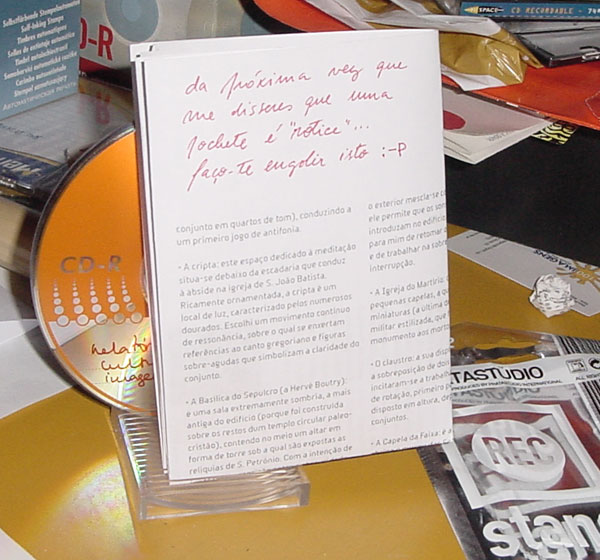 da próxima vez que
me disseres que uma
pochete é "notice"...
faço-te engolir isto :-P
conjunto em quartos de tom), conduzindo a
um primeiro jogo de antifonia.
- A cripta: este espaço dedicado à meditação
situa-se debaixo da escadaria que conduz
à abside na igreja de S. João Batista.
Ricamente ornamentada, a cripta é um
local de luz, caracterizado pelos numerosos
dourados. Escolhi um movimento contínuo
de ressonância, sobre o qual se enxertam
referências ao canto gregoriano e figuras
sobre-agudas que simbolizam a claridade do
conjunto.
- A Basílica do Sepulcro (a Hervé Boutry):
é uma sala extremamente sombria, a mais
antiga do edifício (porque foi construída
sobre os restos dum templo circular paleo-
cristão), contendo no meio um altar em
forma de torre sob a qual são expostas as
relíquias de S. Petrónio. Com a intenção de
o exterior mescla-se
ele permite que os
introduzam no edifício
para mim de retomar
e de trabalhar na
interrupção.
- A Igreja do Martírio:
pequenas capelas, a
miniaturas (a última
militar estilizada, que
monumento aos
- O claustro: a sua
a sobreposição de
incitaram-se a
de rotação, primeiro
disposto em altura,
conjuntos.
- A Capela da Faixa: é
Selbstfärbende Stempelautomaten
Self-Inking Stamps
Timbres automatiques
Sellos de entintaje automático
Timbri autoinchiostranti
Carimbo automático
D-R
CD-R
imagem
SPACE
CD RECORDABLE 74
IMAGENS
TASTUDIO
REC
stan